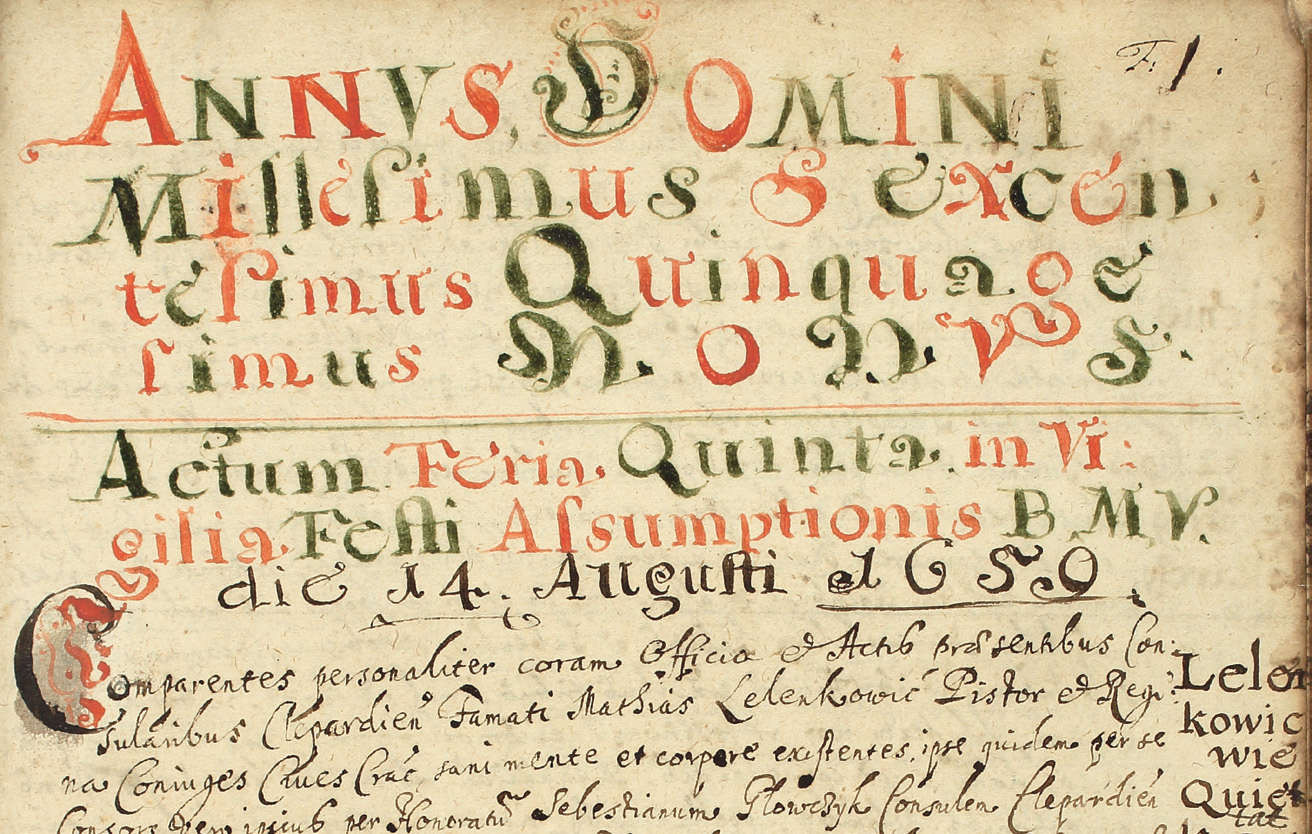 F. 1.
ANNVS DOMINI
Millesimus Sexcen
tesimus Quinquage
simus NONVS.
Actum Feria Quinta in Vi:
gilia Festi Assumptionis B. M. V.
die 14. Augusti 1659.
Comparentes personaliter coram Officio et Actis præsentibus Con:
sularibus Clepardien Famati Mathias Lelenkowic Pistor et Regi:
na Coniuges Ciues Crac, sani mente et corpore existentes, ipse quidem per se
Consors vero ipsius per Honoratū Sebestianum Glowczyk Consulem Clepardien
Lelen
kowic
wie
Quiet
tat